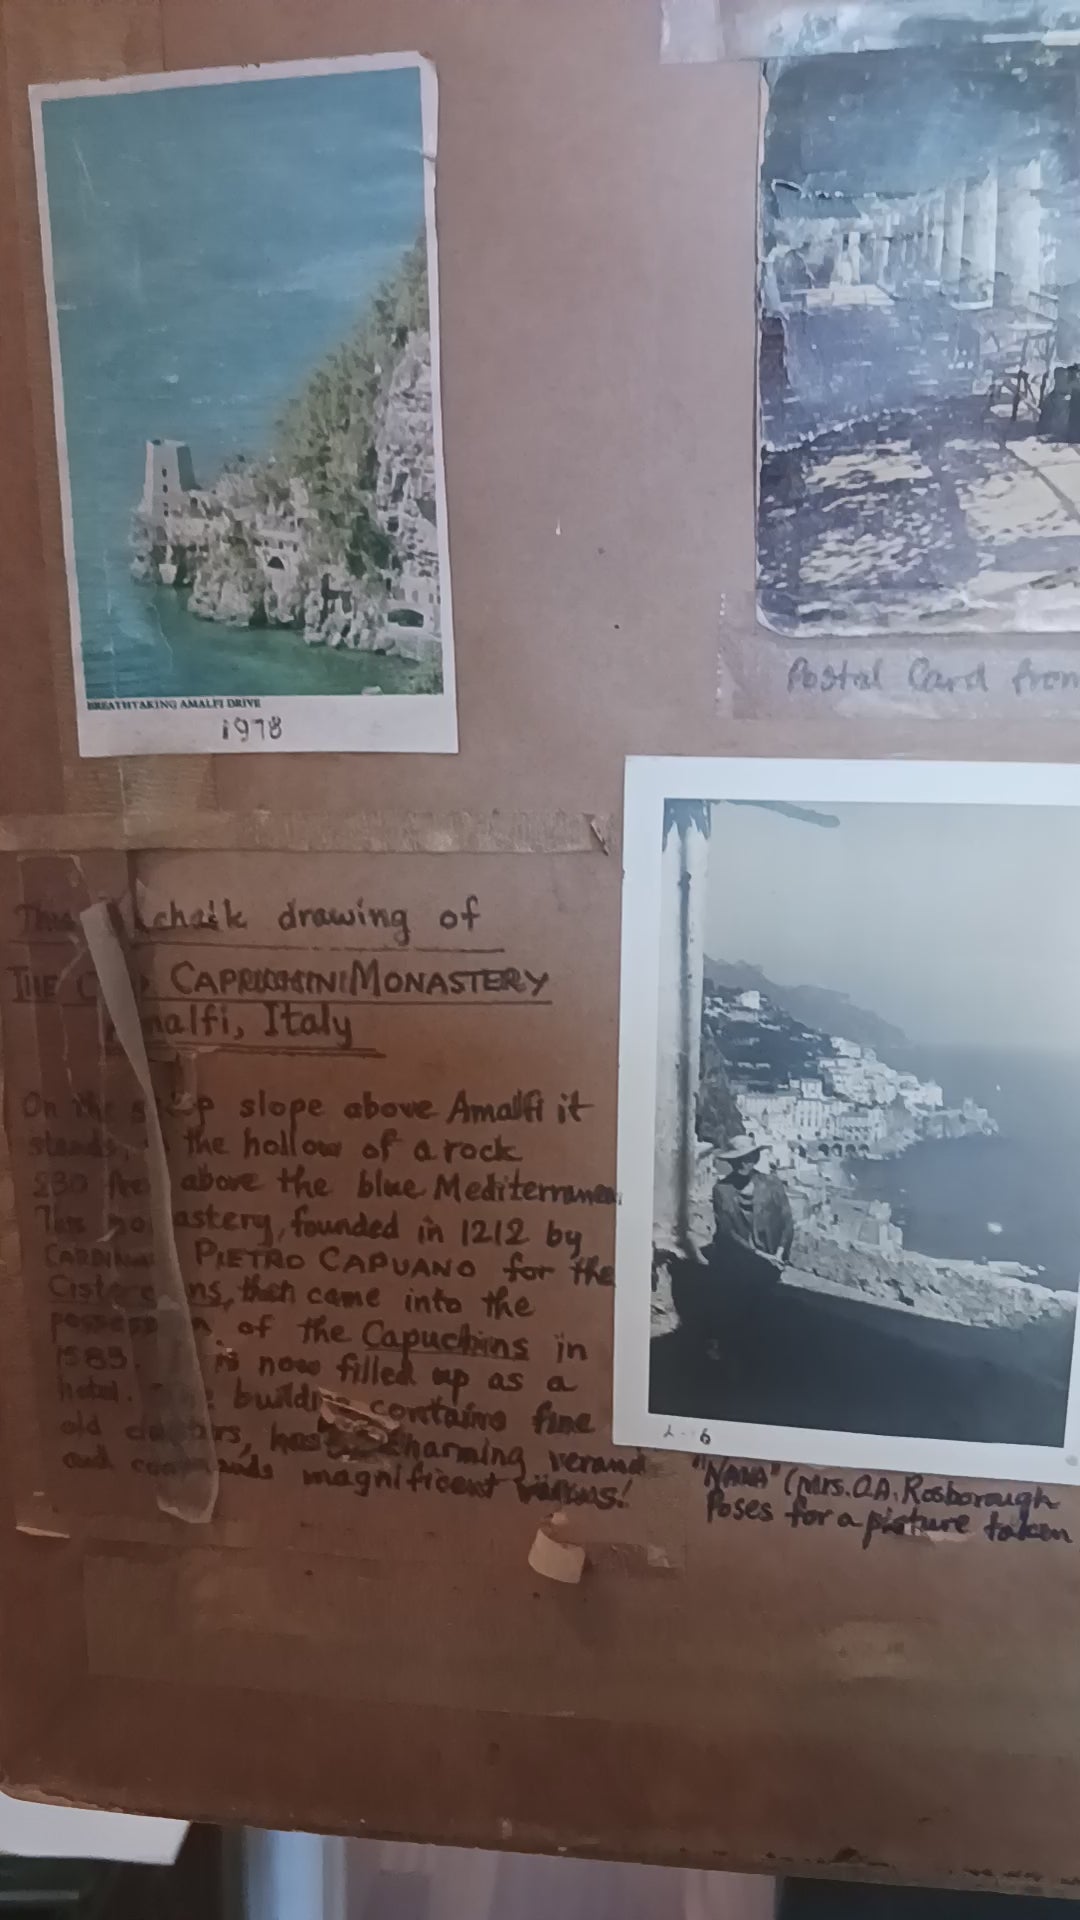 BREATHTAKING AMALFI DRIVE
1978
Postal Card from
This chalk drawing of
THE CAPPUCCHINI MONASTERY
Amalfi, Italy
On the steep slope above Amalfi it
stands, the hollow of a rock
230 feet above the blue Mediterranean.
This monastery, founded in 1212 by
CARDINAL PIETRO CAPUANO for the
Cistercians, then came into the
possession of the Capuchins in
1583. is now filled up as a
hotel. The building contains fine
old cloisters, has charming verand
and commands magnificent
6
"NANA" (Mrs. O.A. Rosborough
Poses for a picture taken